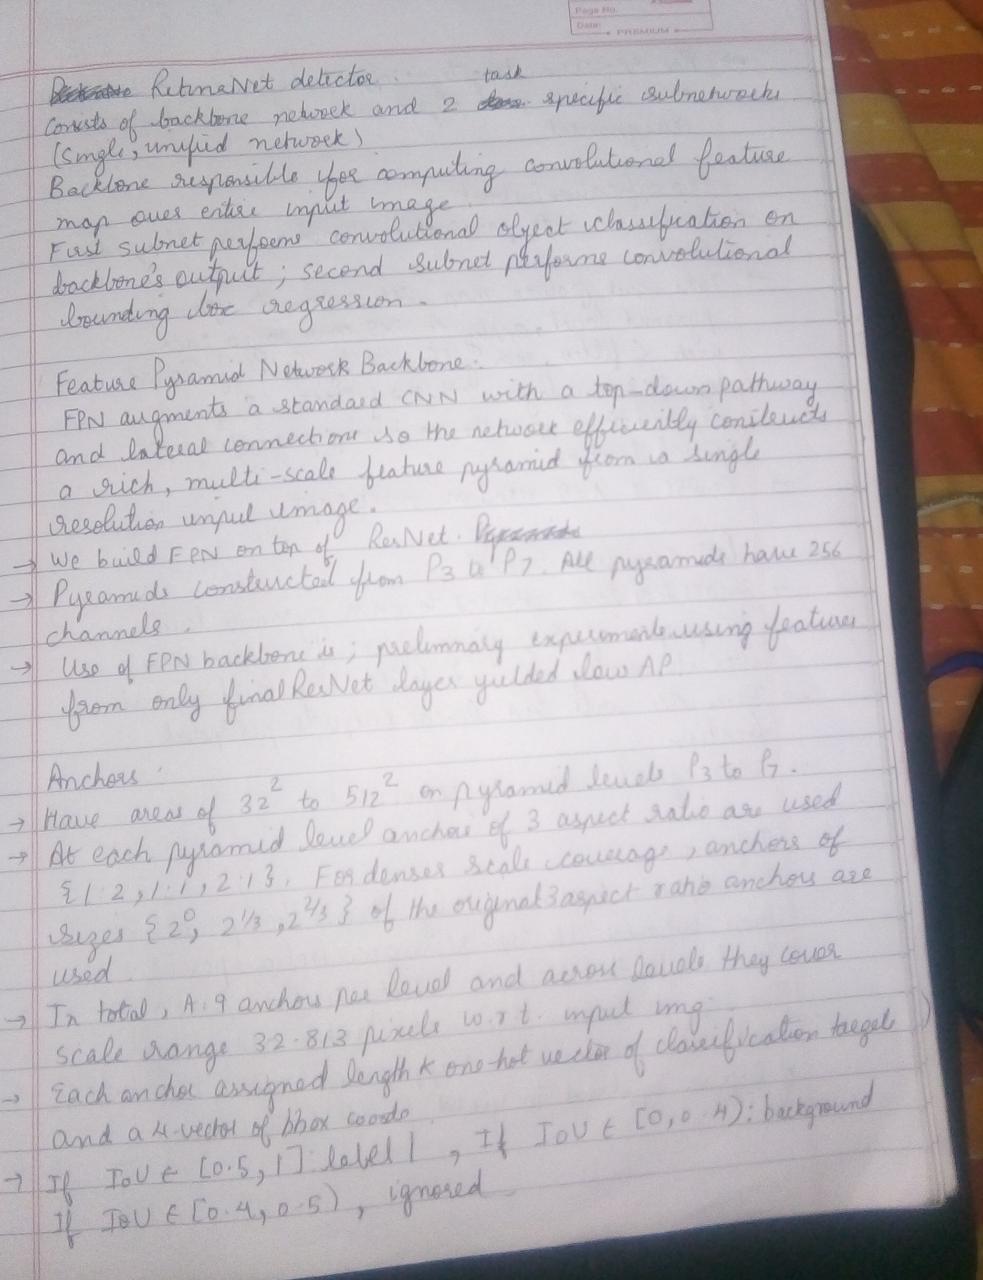 Page No.
Date:
PREMIUM
RetinaNet detector.
Consists of backbone network and 2 task specific subnetworks
(Single, unified network)
Backbone responsible for computing convolutional feature
map over entire input image.
First subnet performs convolutional object classification on
backbone's output; second subnet performs convolutional
bounding box regression.
Feature Pyramid Network Backbone.
FPN augments a standard CNN with a top-down pathway
and lateral connections so the network efficiently constructs
a rich, multi-scale feature pyramid from a single
resolution input image.
→ We build FPN on top of ResNet.
→ Pyramids constructed from P3 to P7. All pyramids have 256
channels.
→ Use of FPN backbone is; preliminary experiments using features
from only final ResNet layer yielded low AP
Anchors.
→ Have areas of 32² to 512² on pyramid levels P3 to P7.
→ At each pyramid level anchors of 3 aspect ratio are used
{1:2, 1:1, 2:1}. For denser scale coverage, anchors of
sizes {2⁰, 2^1/3, 2^2/3} of the original 3 aspect ratio anchors are
used
→ In total, A=9 anchors per level and across levels they cover
scale range 32-813 pixels w.r.t. input img.
→ Each anchor assigned length K one-hot vector of classification targets
and a 4-vector of bbox coords
→ If IoU ∈ [0.5, 1]: label 1, If IoU ∈ [0, 0.4): background
If IoU ∈ [0.4, 0.5), ignored